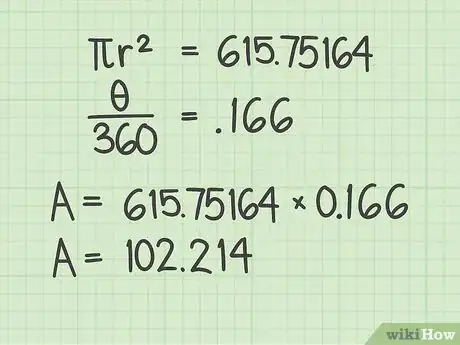 πr² = 615.75164
θ/360 = .166
A = 615.75164 × 0.166
A = 102.214
wikiHow